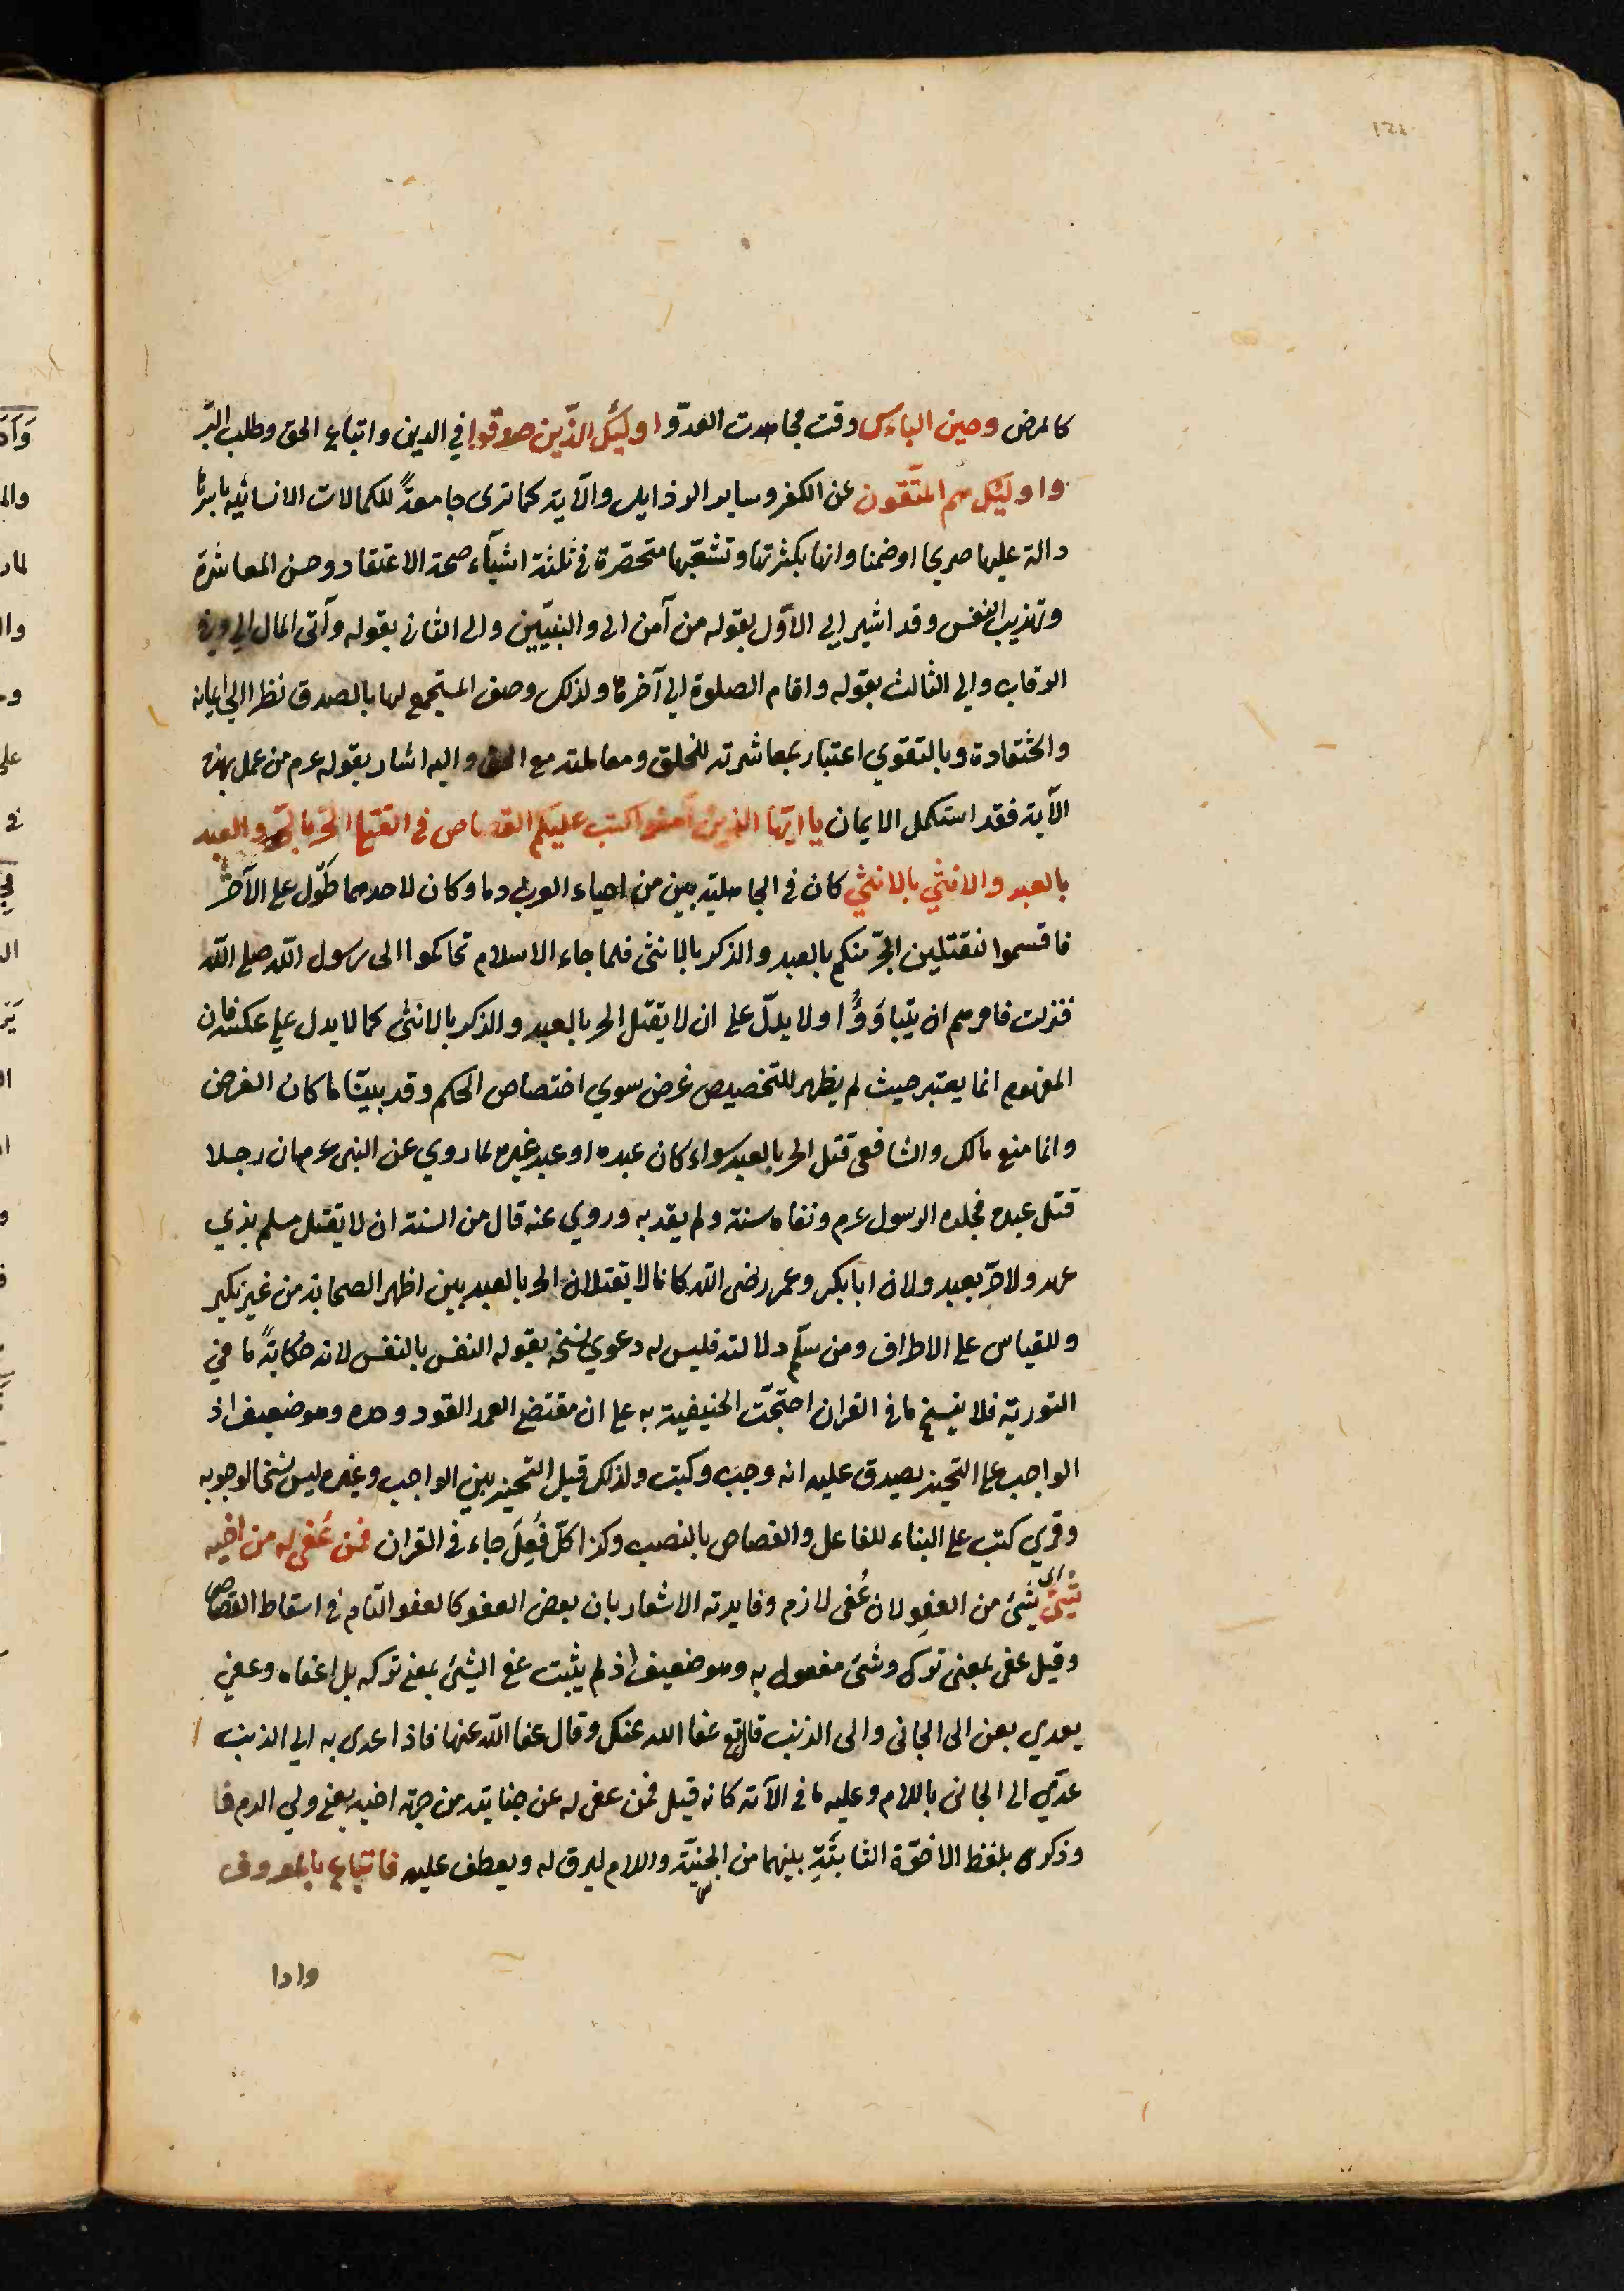 كالمرض وحين الباءس وقت مجاهدت العدوّ واوليئك الذّين صدقوا في الدين واتباع الحق وطلب البّر
واوليئك هم المتّقون عن الكفر وساير الرذايل والآية كما ترى جامعةً للكمالات الانسانيه باسرها
دالة عليها صريحا اوضمنا وانها بكثرتها وتشعّبها متحصّرة في ثلثة اشيآء صحة الاعتقاد وحسن المعاشرة
وتهذيب النفس وقد اشير الي الاوّل بقوله من آمن الى والنبيّين والى الثانى بقوله وآتى المال الي وفي
الرقاب والي الثالث بقوله واقام الصلوة الي آخرها ولذلك وصف المستجمع لها بالصدق نظرا الي ايمانه
واعتقاده وبالتقوي اعتبار بمعاشرته للخلق ومعاملته مع الحق واليه اشار بقوله عرم من عمل بهذه
الآية فقد استكمل الايمان يا ايّها الذين آمنوا كتب عليكم القصاص فى القتلى الحرّ بالحرّ والعبد
بالعبد والانثي بالانثي كان فى الجاهلية بين من احياء العرب دما وكان لاحدهما طوّل على الآخر
فاقسموا لنقتلين الحرّ منكم بالعبد والذكر بالانثى فلما جاء الاسلام تحاكموا الى رسول اللّه صلى اللّه
فنزلت فامرهم ان يتباوَؤُا ولا يدلّ على ان لا يقتل الحر بالعبد والذكر بالانثى كما لا يدل علي عكسه فان
المفهوم انما يعتبر حيث لم يظهر للتخصيص غرض سوي اختصاص الحكم وقد بيّنا ما كان الغرض
وانما منع مالك والشافعى قتل الحر بالعبد سواء كان عبده او عبد غيره لما روي عن النبى عرم ان رجلا
قتل عبده فجلده الرسول عرم ونفاه سنة ولم يقد به وروي عنه قال من السنة ان لا يقتل مسلم بذي
عهد ولا حرّ بعبد ولان ابا بكر وعمر رضى اللّه كانا لا يقتلان الحر بالعبد بين اظهر الصحابة من غير نكير
وللقياس على الاطراف ومن سلّم دلالته فليس له دعوي نسخه بقوله النفس بالنفس لانه حكايةً ما في
التورية فلا ينسخ ما فى القران احتجّت الحنيفية به على ان مقتضى العمد القود وحده وهو ضعيف اذ
الواجب على التخير يصدق عليه انه وجب وكبت ولذلك قيل التخير بين الواجب وغيره ليس نسخا لوجوبه
وقري كتب على البناء للفاعل والقصاص بالنصب وكذا كلّ فُعِلَ جاء فى القران فمن عُفى له من اخيه
شيئ اى شئ من العفو لان عُفى لازم وفايدته الاشعار بان بعض العفو كالعفو التّام فى اسقاط القصاص
وقيل عفى بمعنى ترك وشئ مفعول به وهو ضعيف اذ لم يثبت عفى الشئ بمعنى تركه بل اعفاه وعفي
يعدي بعن الى الجانى والى الذنب قال تع عفا الله عنك وقال عفا اللّه عنها فاذا عدى به الي الذنب
عدّي الى الجانى باللام وعليه ما فى الآية كانه قيل فمن عفى له عن جنايته من جهة اخيه يعنى ولي الدم فا
وذكره بلفظ الاخوّة الثابتَةِ بينهما من الجنيّة والاسلام ليرق له ويعطف عليه فاتّباع بالمعروف
وادا